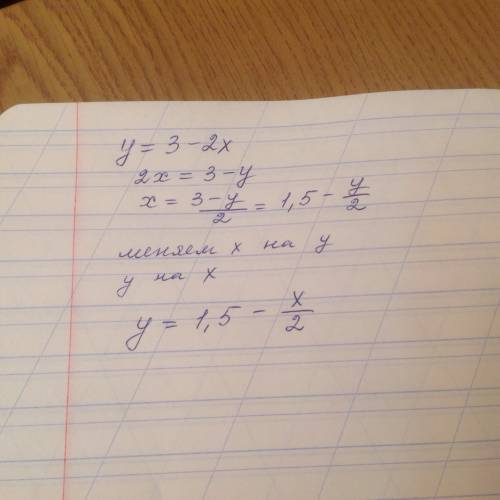 y = 3 - 2x
2x = 3 - y
x = \frac{3-y}{2} = 1,5 - \frac{y}{2}
меняем x на y
y на x
y = 1,5 - \frac{x}{2}